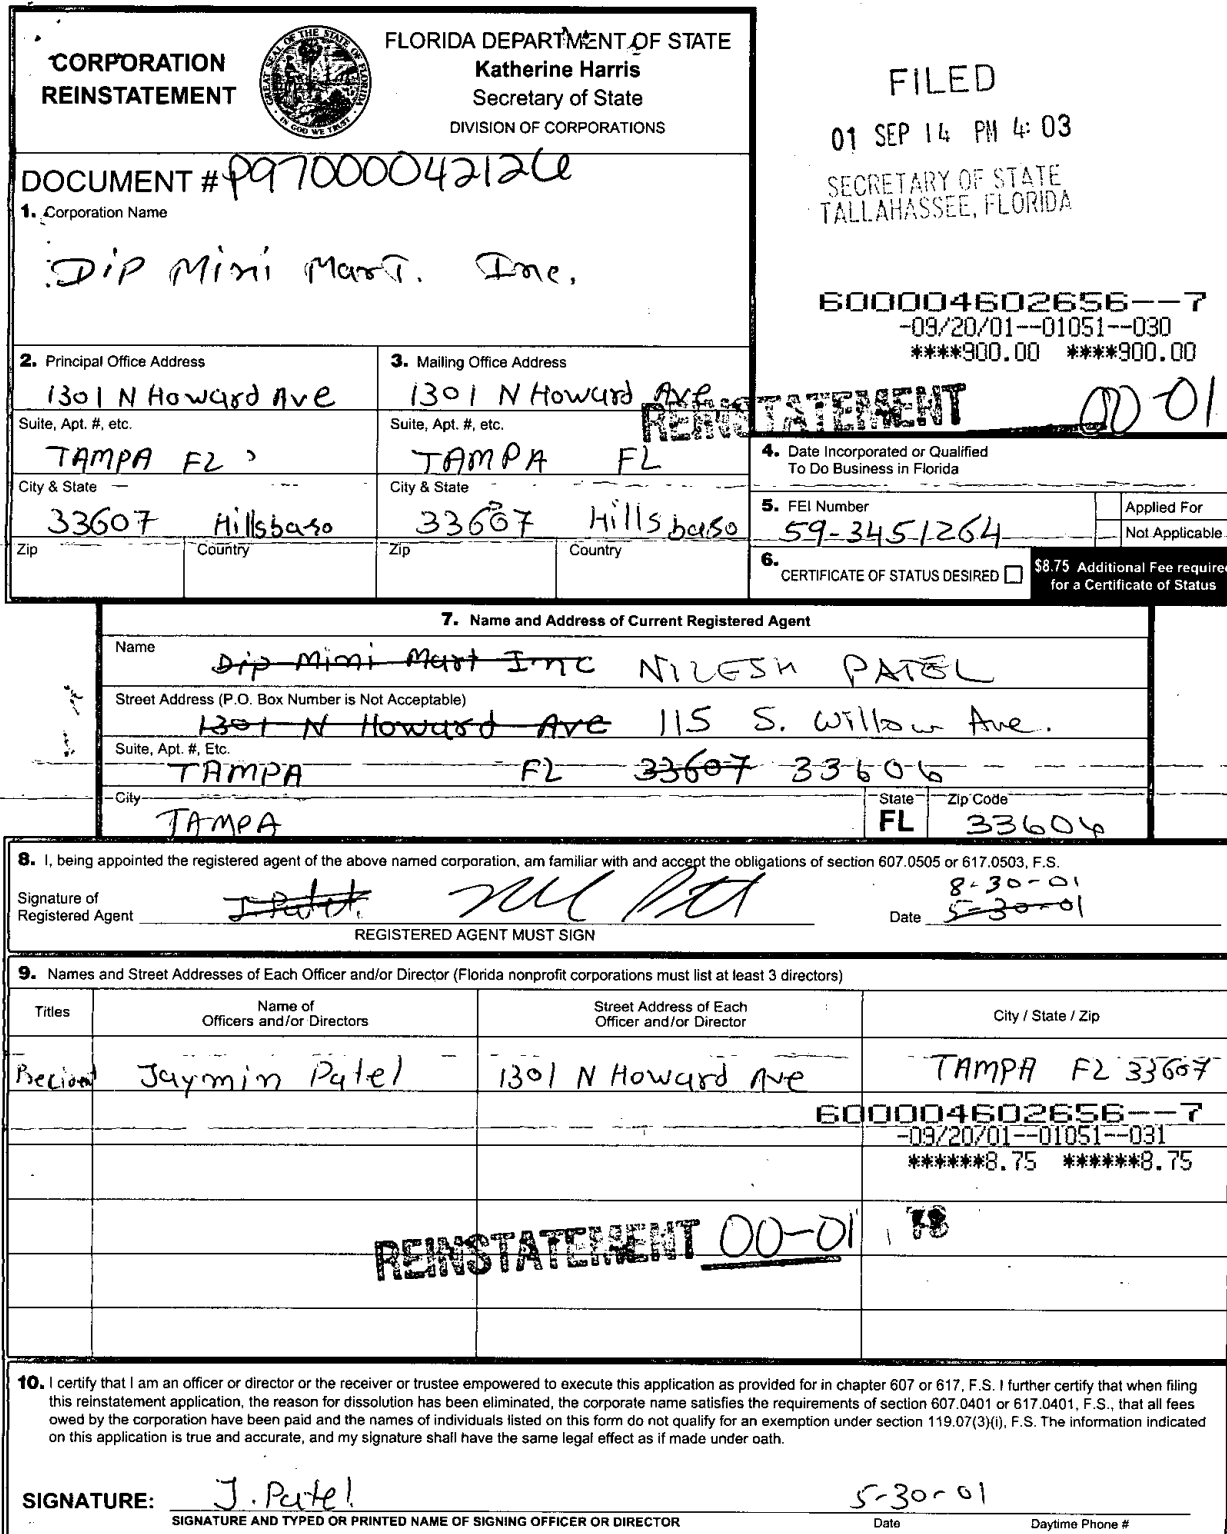 CORPORATION
REINSTATEMENT
FLORIDA DEPARTMENT OF STATE
Katherine Harris
Secretary of State
DIVISION OF CORPORATIONS
FILED
01 SEP 14 PM 4:03
SECRETARY OF STATE
TALLAHASSEE, FLORIDA
DOCUMENT # P97000042126
1. Corporation Name
Dip Mini Mart. Inc.
600004602656--7
-09/20/01--01051--030
****900.00 ****900.00
REINSTATEMENT 00-01
2. Principal Office Address
1301 N Howard Ave
3. Mailing Office Address
1301 N Howard Ave
Suite, Apt. #, etc.
TAMPA FL
Suite, Apt. #, etc.
TAMPA FL
City & State
33607 Hillsbaso
City & State
33607 Hillsbaso
Zip Country
Zip Country
4. Date Incorporated or Qualified
To Do Business in Florida
5. FEI Number
59-3451264
Applied For
Not Applicable
6. CERTIFICATE OF STATUS DESIRED
$8.75 Additional Fee required
for a Certificate of Status
7. Name and Address of Current Registered Agent
Name
Dip Mini Mart Inc NILESH PATEL
Street Address (P.O. Box Number is Not Acceptable)
1301 N Howard Ave 115 S. Willow Ave.
Suite, Apt. #, Etc.
TAMPA FL 33607 33606
City State Zip Code
TAMPA FL 33606
8. I, being appointed the registered agent of the above named corporation, am familiar with and accept the obligations of section 607.0505 or 617.0503, F.S.
8-30-01
Signature of
Registered Agent J. Patel. Date 5-30-01
REGISTERED AGENT MUST SIGN
9. Names and Street Addresses of Each Officer and/or Director (Florida nonprofit corporations must list at least 3 directors)
Titles
Name of
Officers and/or Directors
Street Address of Each
Officer and/or Director
City / State / Zip
Jaymin Patel 1301 N Howard Ave TAMPA FL 33607
600004602656--7
-09/20/01--01051--031
******8.75 ******8.75
REINSTATEMENT 00-01
10. I certify that I am an officer or director or the receiver or trustee empowered to execute this application as provided for in chapter 607 or 617, F.S. I further certify that when filing
this reinstatement application, the reason for dissolution has been eliminated, the corporate name satisfies the requirements of section 607.0401 or 617.0401, F.S., that all fees
owed by the corporation have been paid and the names of individuals listed on this form do not qualify for an exemption under section 119.07(3)(i), F.S. The information indicated
on this application is true and accurate, and my signature shall have the same legal effect as if made under oath.
SIGNATURE: J. Patel 5-30-01
SIGNATURE AND TYPED OR PRINTED NAME OF SIGNING OFFICER OR DIRECTOR Date Daytime Phone #